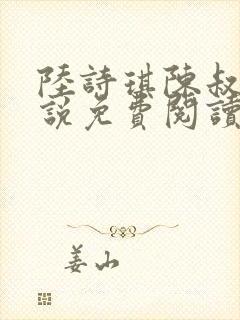 陸詩琪陳叔
說免費閱讀
姜山